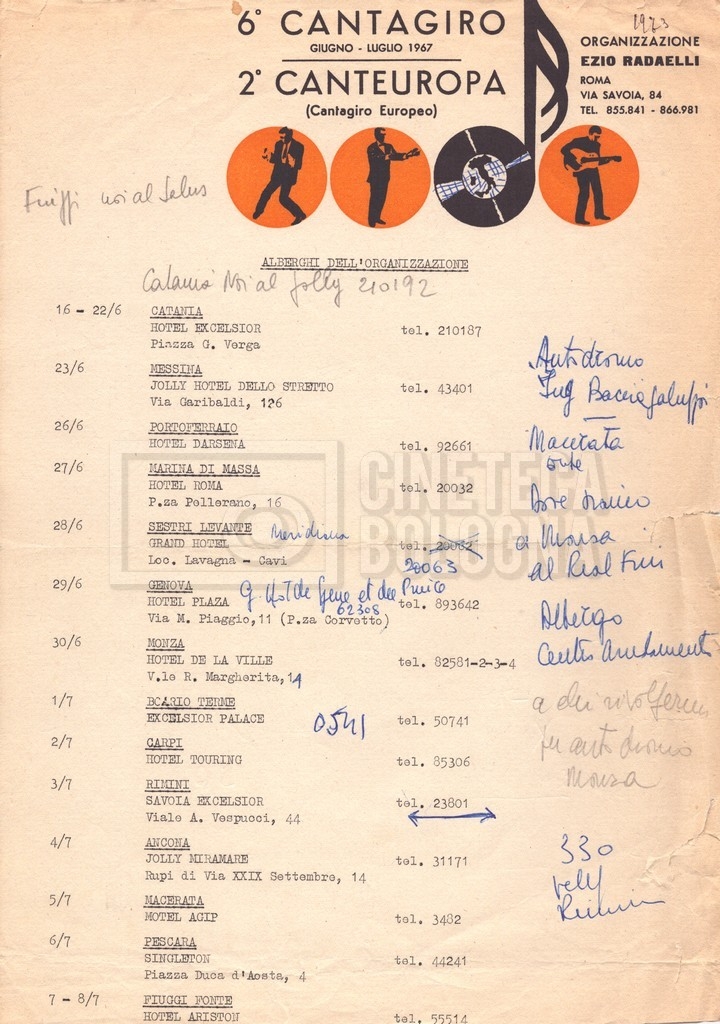 1973
6° CANTAGIRO
GIUGNO - LUGLIO 1967
2° CANTEUROPA
(Cantagiro Europeo)
ORGANIZZAZIONE
EZIO RADAELLI
ROMA
VIA SAVOIA, 84
TEL. 855.841 - 866.981
noi al
ALBERGHI DELL'ORGANIZZAZIONE
Noi al Jolly 210192
16 - 22/6 CATANIA
HOTEL EXCELSIOR tel. 210187
Piazza G. Verga
23/6 MESSINA
JOLLY HOTEL DELLO STRETTO tel. 43401
Via Garibaldi, 126
26/6 PORTOFERRAIO
HOTEL DARSENA tel. 92661
27/6 MARINA DI MASSA
HOTEL ROMA tel. 20032
P.za Pellerano, 16
28/6 SESTRI LEVANTE
GRAND HOTEL tel.
Loc. Lavagna - Cavi 20063
29/6 GENOVA G. Hot de
HOTEL PLAZA 62308 tel. 893642
Via M. Piaggio,11 (P.za Corvetto)
30/6 MONZA
HOTEL DE LA VILLE tel. 82581-2-3-4
V.le R. Margherita,14
1/7 BOARIO TERME
EXCELSIOR PALACE 0541 tel. 50741
2/7 CARPI
HOTEL TOURING tel. 85306
3/7 RIMINI
SAVOIA EXCELSIOR tel. 23801
Viale A. Vespucci, 44
4/7 ANCONA
JOLLY MIRAMARE tel. 31171
Rupi di Via XXIX Settembre, 14
5/7 MACERATA
MOTEL AGIP tel. 3482
6/7 PESCARA
SINGLETON tel. 44241
Piazza Duca d'Aosta, 4
7 - 8/7 FIUGGI FONTE
HOTEL ARISTON tel. 55514
Autodromo
Ing Bacciagaluppi
Macerata
a Monza
al
Albergo
Centro
a chi rivolgermi
autodromo
Monza
330
CINETECA
BOLOGNA